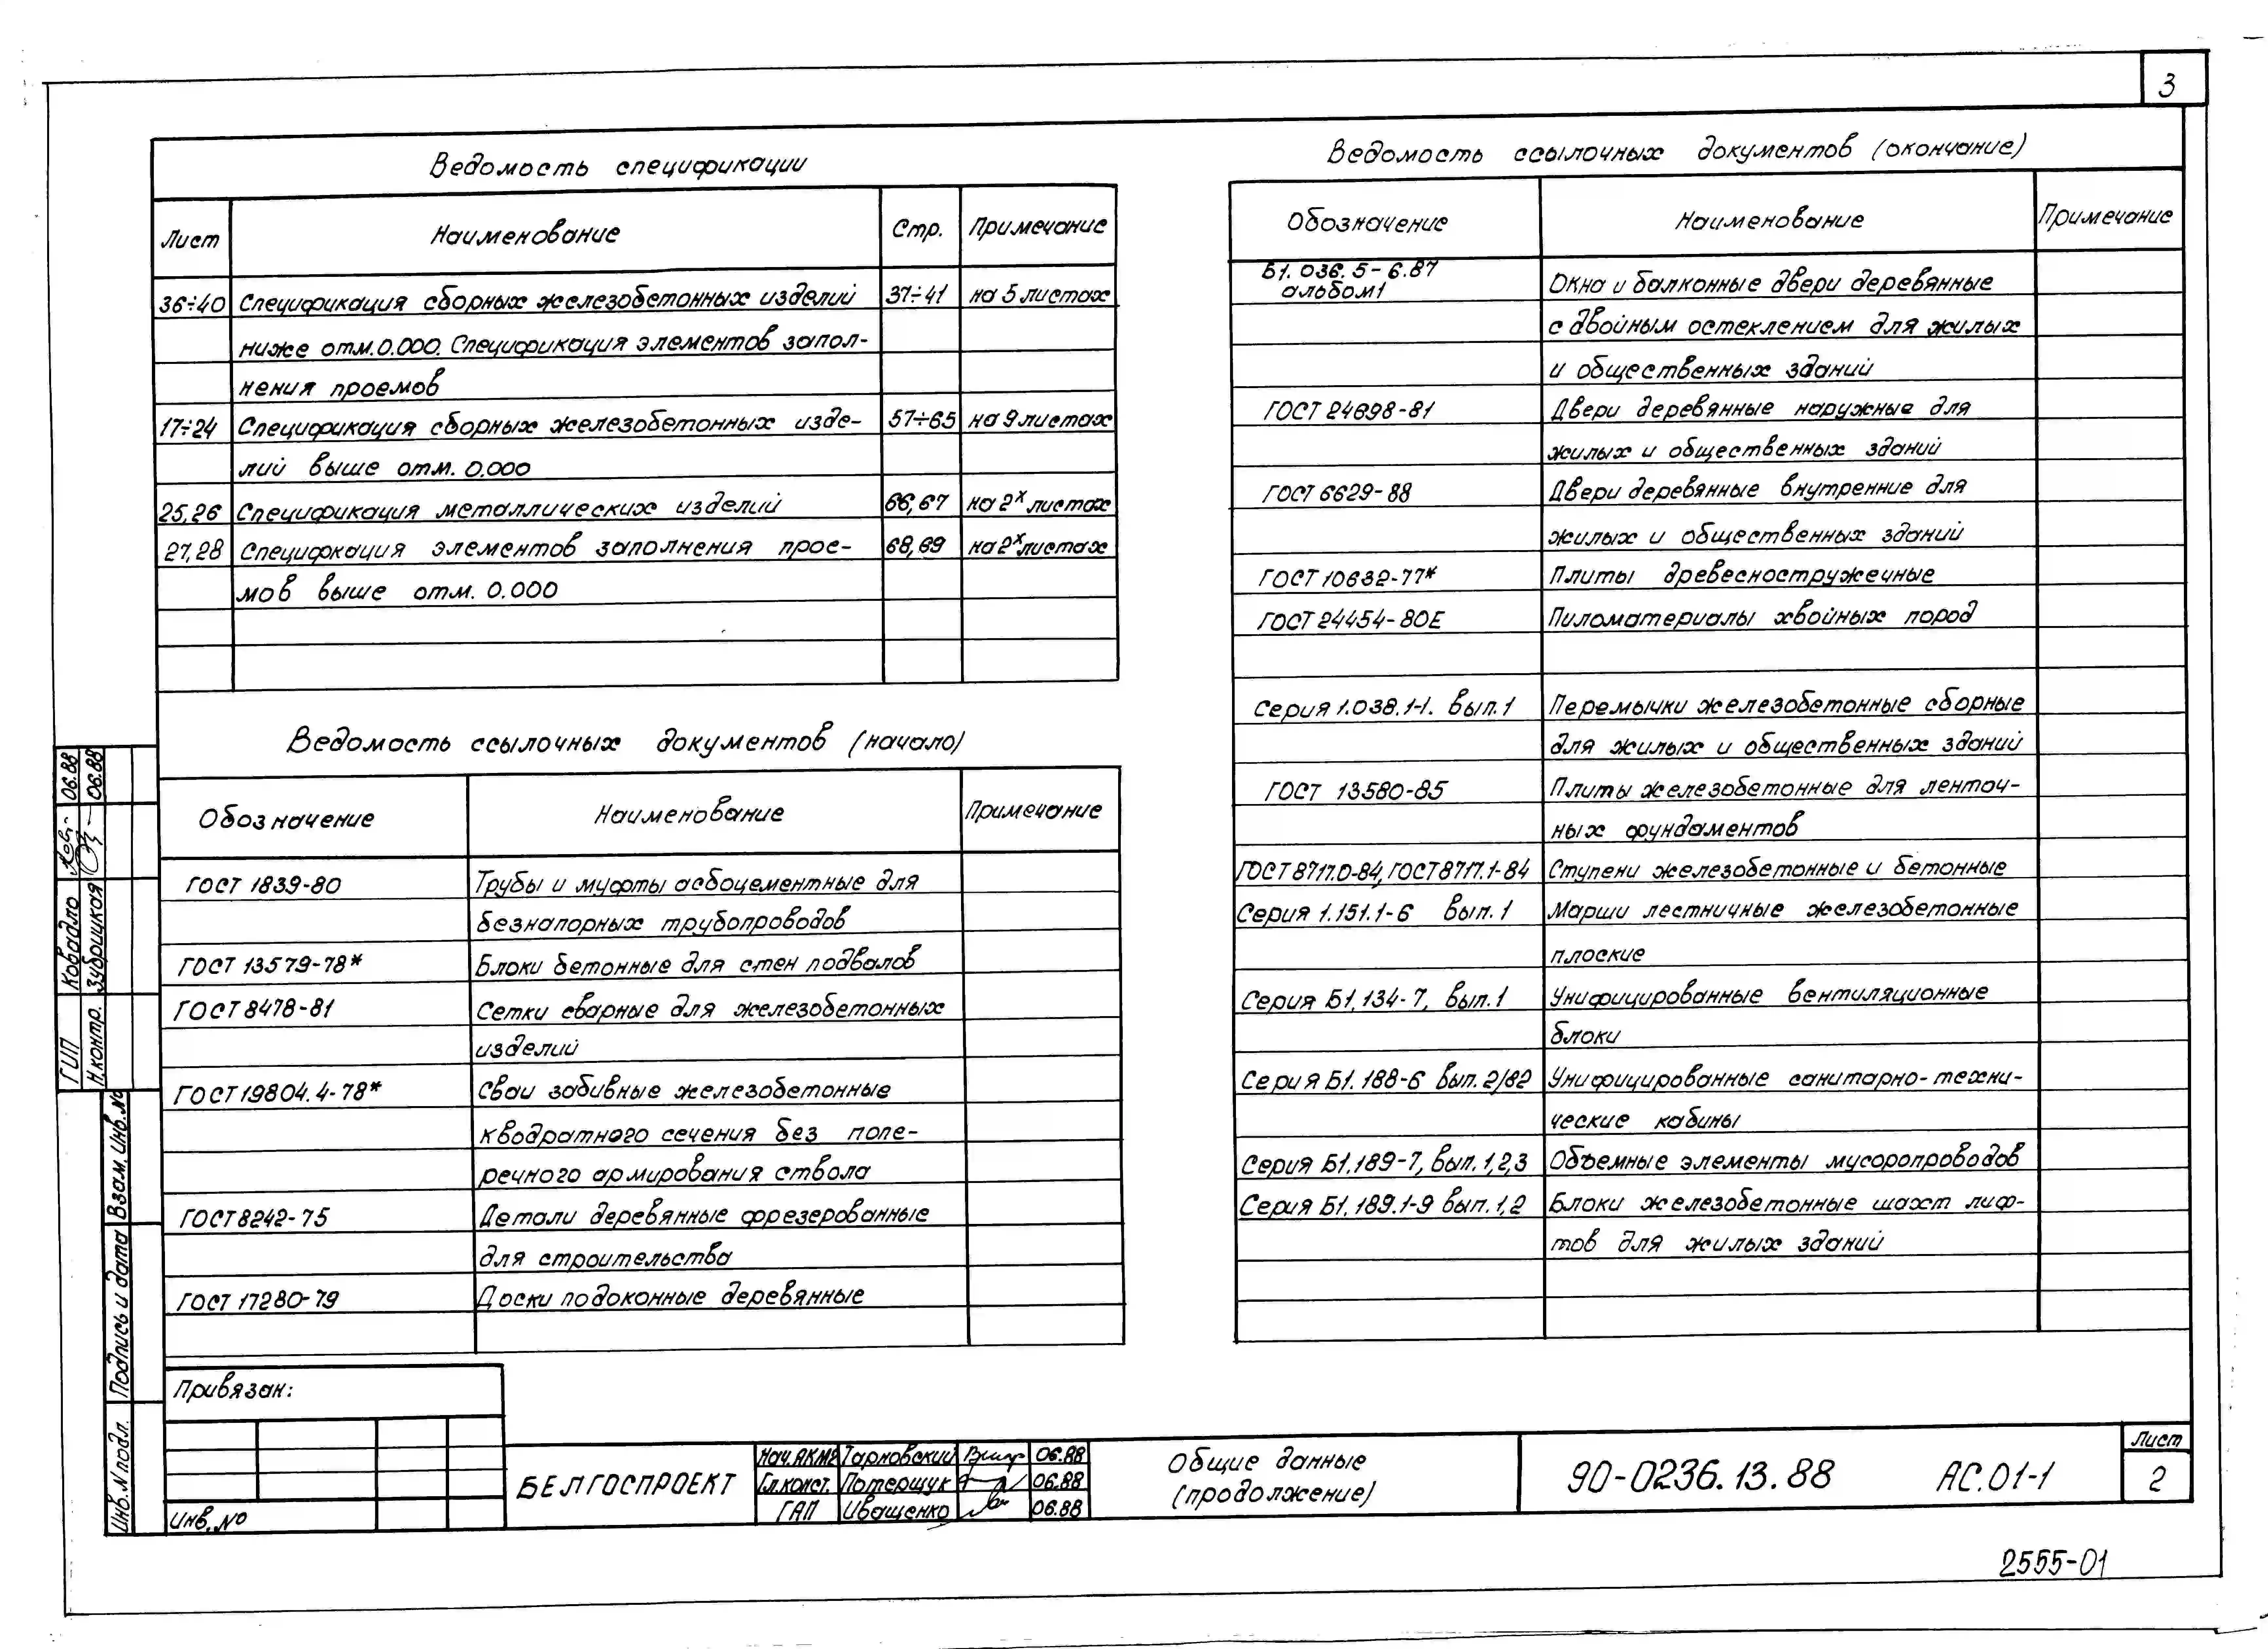 3
Ведомость спецификации
Лист Наименование Стр. Примечание
36÷40 Спецификация сборных железобетонных изделий 37÷41 на 5 листах
ниже отм. 0.000. Спецификация элементов запол-
нения проемов
17÷24 Спецификация сборных железобетонных изде- 57÷65 на 9 листах
лий выше отм. 0.000
25,26 Спецификация металлических изделий 66,67 на 2х листах
27,28 Специфкация элементов заполнения прое- 68,69 на 2х листах
мов выше отм. 0.000
Ведомость ссылочных документов (начало)
Обозначение Наименование Примечание
ГОСТ 1839-80 Трубы и муфты асбоцементные для
безнапорных трубопроводов
ГОСТ 13579-78* Блоки бетонные для стен подвалов
ГОСТ 8478-81 Сетки сварные для железобетонных
изделий
ГОСТ 19804.4-78* Сваи забивные железобетонные
квадратного сечения без попе-
речного армирования ствола
ГОСТ 8242-75 Детали деревянные фрезерованные
для строительства
ГОСТ 17280-79 Доски подоконные деревянные
Ведомость ссылочных документов (окончание)
Обозначение Наименование Примечание
Б1. 036. 5-6.87
альбом 1 Окна и балконные двери деревянные
с двойным остеклением для жилых
и общественных зданий
ГОСТ 24698-81 Двери деревянные наружные для
жилых и общественных зданий
ГОСТ 6629-88 Двери деревянные внутренние для
жилых и общественных зданий
ГОСТ 10632-77* Плиты древесностружечные
ГОСТ 24454-80Е Пиломатериалы хвойных пород
Серия 1.038.1-1. вып. 1 Перемычки железобетонные сборные
для жилых и общественных зданий
ГОСТ 13580-85 Плиты железобетонные для ленточ-
ных фундаментов
ГОСТ 8717.0-84, ГОСТ 8717.1-84 Ступени железобетонные и бетонные
Серия 1.151.1-6 вып. 1 Марши лестничные железобетонные
плоские
Серия Б1.134-7, вып. 1 Унифицированные вентиляционные
блоки
Серия Б1. 188-6 вып. 2/82 Унифицированные санитарно-техни-
ческие кабины
Серия Б1.189-7, вып. 1,2,3 Объемные элементы мусоропроводов
Серия Б1. 189.1-9 вып. 1,2 Блоки железобетонные шахт лиф-
тов для жилых зданий
ГИП Ковадло 06.88
Н.контр. Зубрицкая 06.88
Взам. инв. №
Подпись и дата
Инв. N подл.
Привязан:
Инв. №
БЕЛГОСПРОЕКТ
Нач.АКМ2 Тарновский 06.88
Гл.конст. Потерщук 06.88
ГАП Иващенко 06.88
Общие данные
(продолжение)
90-0236.13.88 АС.01-1
Лист
2
2555-01